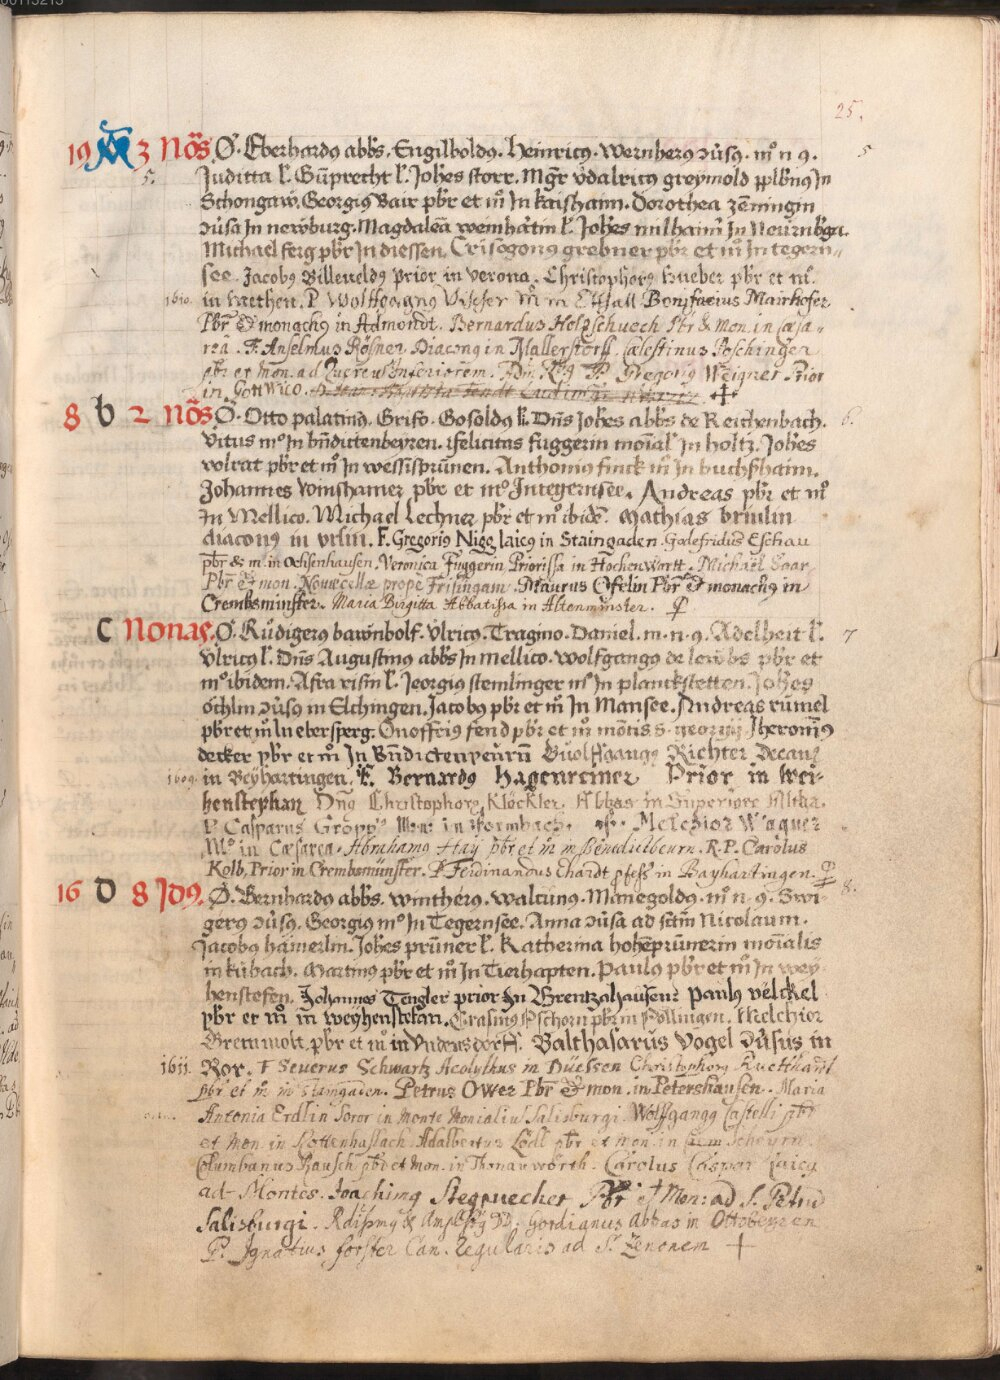 25.
19 A 3 Nōs Ø. Eberhardꝯ abbs. Engilboldꝯ. Heinricꝯ. Wernherꝯ ꝯūsꝯ. m° n ꝯ. 5
5. Juditta l'. Gūprecht l'. Joh'es storr. Mḡr vdalricꝯ greymold pplbnꝯ Jn
Schongaw. Georgiꝯ Vair pbr et m° Jn kaishaim. Dorothea zēningin
ꝯūsa Jn newburg. Magdalēa l'. Joh'es
Michael ferg pbr Jn diessen. Crisegonꝯ grebner pbr et m° Jn tegern=
see. Jacobꝯ Billeveldꝯ prior in verona. Christophorꝯ hueber pbr et m°.
1610. in P. Wolffgangꝯ Vischer m in Ettall Bonifacius Mairhofer
Pbr & monachꝯ in Admondt. Bernardus Holzschuech Pbr & Mon. in Cæsa=
rea. F. Anselmus Rösner Diaconꝯ in Mallerstorff. Cælestinus Poschinger
pbr et mon. ad Quercus Inferiorem. P. Gregoriꝯ Weigner. Prior
in Gottwico. +
8 b 2 Nōs Ø. Otto palatinꝯ. Grifo. Gosoldꝯ l'. Dn̄s Joh'es abbs de Reichenbach. 6.
Vitus m° Jn bn̄dictenbeyren. felicitas fuggerin moīal' Jn holtz. Joh'es
volrat pbr et m° Jn wessisprūnen. Anthoniꝯ finck m° Jn buchshaim.
Johannes Winshamer pbr et m° Jn tegernsee. Andreas pbr et m°
Jn Mellico. Michael Lechner pbr et m° ibidē. Mathias briulin
diaconꝯ in vrsin. F. Gregoriꝯ Nigg laicꝯ in Staingaden. Godefridus Eschau
pbr & m. in Ochsenhausen. Veronica Fuggerin Priorissa in Hochen Wartt. Michaël Saar
Pbr & mon. Novæcellæ prope Frisingam. Maurus Ofelin Pbr & monachꝯ in
Crembsminster. Maria Birgitta Abbatissa in Altenmünster.
C Nonas. Ø. Rūdigerꝯ bawnbolf. Vlricꝯ. Tragino. Daniel. m. n. ꝯ. Adelheit l'. 7
Vlricꝯ l'. Dn̄s Augustinꝯ abbs Jn mellico. Wolfgangꝯ de pbr et
m° ibidem. Afra risin l'. Jeorgiꝯ stemlinger m° Jn planckstetten. Joh'es
öchlin ꝯūsꝯ in Elchingen. Jacobꝯ pbr et m° Jn Mansee. Andreas rūmel
pbr et m° In ebersperg. Onoffriꝯ fend pbr et m° mōtis s. georgij. Jheronimꝯ
decker pbr et m° Jn Bn̄dictenpeurn̄ Guolffgangꝯ Richter Decanꝯ
1609. in Beyhartingen. F. Bernardꝯ Hagenreiner Prior in wei-
henstephan Dn̄ꝯ Christophorꝯ Klöckler Abbas in Superiore Altha.
P. Casparus Gröppꝯ Mon: in Formbach. Melchior Wagner
M° in Cæsarea. Abrahamꝯ Hay pbr et m in Benedictbeurn. R. P. Carolus
Kolb, Prior in Crembsmünster. P. Ferdinandus Ehardt profess in Bayhartingen.
16 D 8 Jdꝯ. Ø. Bernhardꝯ abbs. wintherꝯ. waltūnꝯ. Manegoldꝯ. m° n. ꝯ. Swi 8.
gerꝯ ꝯūsꝯ. Georgiꝯ m° Jn Tegernsee. Anna ꝯūsa ad sctm̄ Nicolaum.
Jacobꝯ hāmerlin. Joh'es prūner l'. Katherina hoheprūnerin moīalis
in kūbach. Martinꝯ pbr et m° Jn Tierhapten. Paulꝯ pbr et m° Jn wey
henstefen. Johannes Tengler prior Jn Grentzahausenn Paulꝯ velckel
pbr et m in weyhenstefan. Erasmꝯ Pschorn pbr in Pollingen. Melchior
pbr et m° in Vndensdorff. Balthasarus Vogel ꝯūsus in
1611. Ror. F Severus Schwartz Acolythus in Düessen Christophorꝯ
pbr et m in Staingaden. Petrus Ower Pbr & mon. in Petershausen. Maria
Antonia Erdlin Soror in monte Monialiū Salisburgi. Wolfgangꝯ Castelli pbr
et Mon. in Rottenhaslach. Adalbertus Lödl pbr et mon. in Scheyrn
Columbanus Rausch pbr et Mon. in Thonauwörth. Carolus Caspar laicꝯ
ad Montes. Joachimꝯ Stegpuecher Pbr et Mon: ad S. Petrū
Salisburgi. Rdissimꝯ & Amplissꝯ DD. Gordianus Abbas in Ottobeyren
P. Ignatius forster Can. Regularis ad S. Zenonem +